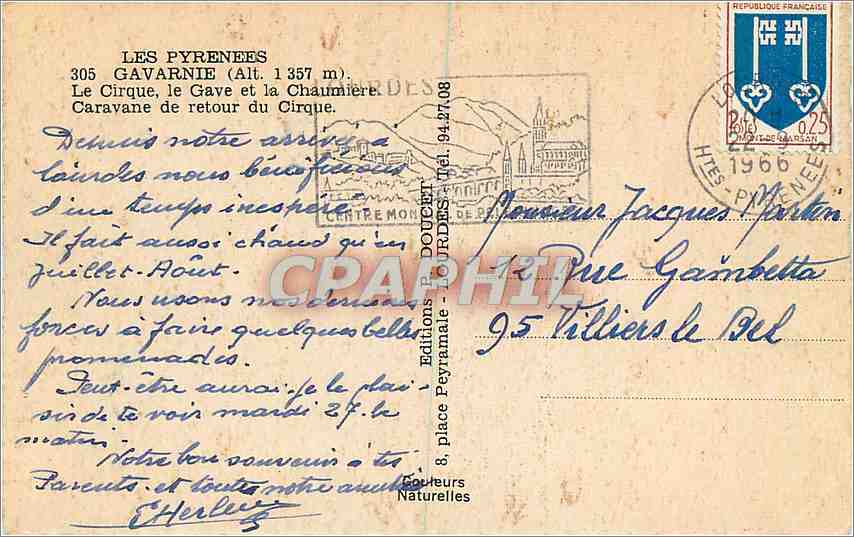 LES PYRENEES
305 GAVARNIE (Alt. 1 357 m).
Le Cirque, le Gave et la Chaumière.
Caravane de retour du Cirque.
Depuis notre arrivée à
Lourdes nous bénéficions
d'un temps inespéré.
Il fait aussi chaud qu'en
Juillet-Août.
Nous usons nos dernières
forces à faire quelques belles
promenades.
Peut-être aurai-je le plai-
sir de te voir mardi 27 le
matin.
Notre bon souvenir à tes
Parents et toute notre amitié
Editions P. DOUCET
8, place Peyramale - LOURDES - Tél. 94.27.08
Couleurs
Naturelles
LOURDES
CENTRE MON DE
REPUBLIQUE FRANÇAISE
0,25
MONT-DE-MARSAN
22-9
1966
HTES-PYRENEES
Monsieur Jacques Martin
12 Rue Gambetta
95 Villiers le Bel
CPARPHIL